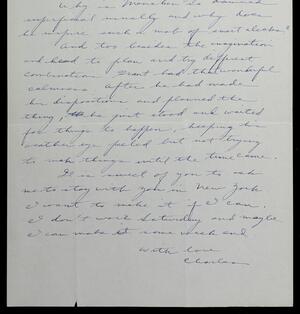 Why is Monsieur so
superficial usually and why does
he inspire such a mob of "smart alecks"
And too besides the imagination
and head to plan and try different
combinations Grant had that wonderful
calmness. After he had made
his dispositions and planned the
thing, he just stood and waited
for things to happen, keeping his
weather eye peeled but not trying
to make things until the time came.
It is sweet of you to ask
me to stay with you in New York
I want to make it if I can.
I don't work Saturday and maybe
I can make it some week end
With love
Charles